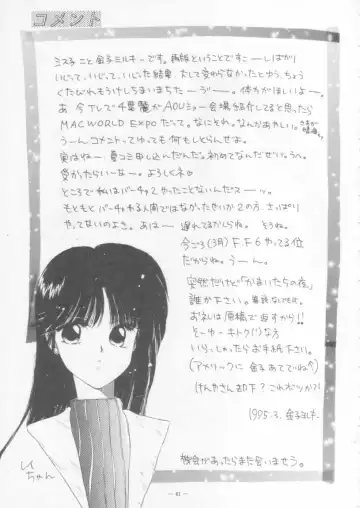 コメント
ミス子こと金子ミルキーです。再録ということですごーしばがり
いじって、いじって、いじった結果、たいして変わらなかったとゆう、ちょう
くたびれもうけしちまいました ─ うがー。体力がほしいよー。
あ 今テレビで千葉麗がAOUショー会場紹介してると思ったら
MACWORLD EXPOだって。なにそれ。なんかあやしい。
うーんコメントってやっても何もしとらんぜよ。
実はねー 夏コミ申し込んだんだ。初めてなんだぜい。うへ
受かったらいーなー。よろしくネ
ところで私はバーチャ2やったことないんだスーッ。
もともとバーチャやる人間ではなかったせいか2の方、さっぱり
やってないのよさ。あはー 遅れてるからね。そうね。
今ごろ(3月)F.F.6やってる位
だからね。うーん。
突然だけど「かまいたちの夜」
誰か下さい。裏話なしでも。
お礼は原稿で返すから!!
そーゆーキトク(!)な方
いらっしゃったらお手紙下さい。
(アメリックに金子あてでね↑)
(けんやさん却下?これがソか?)
1995.3. 金子ミルキー.
機会があったらまた会いませう。
しんちゃん
— 41 —